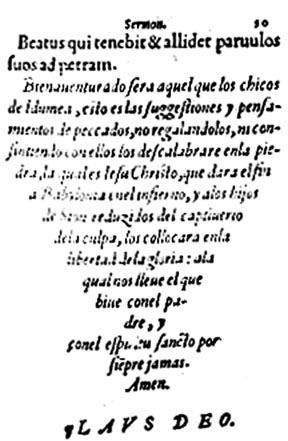 Sermon. 50
Beatus qui tenebit & allidet paruulos
suos ad petram.
Bienauenturado sera aquel que los chicos
de Idumea, esto es las suggestiones y pensa-
mientos de peccados, no regalandolos, ni con-
sintiendo con ellos los descalabrare en la pie-
dra, la qual es Iesu Christo, que dara el fin
a Babylonia en el infierno, y a los hijos
de Sion reduzidos del captiuerio
de la culpa, los collocara en la
libertad de la gloria: a la
qual nos lleue el que
biue con el pa-
dre, y
con el espiritu sancto por
siẽpre jamas.
Amen.
¶ LAVS DEO.